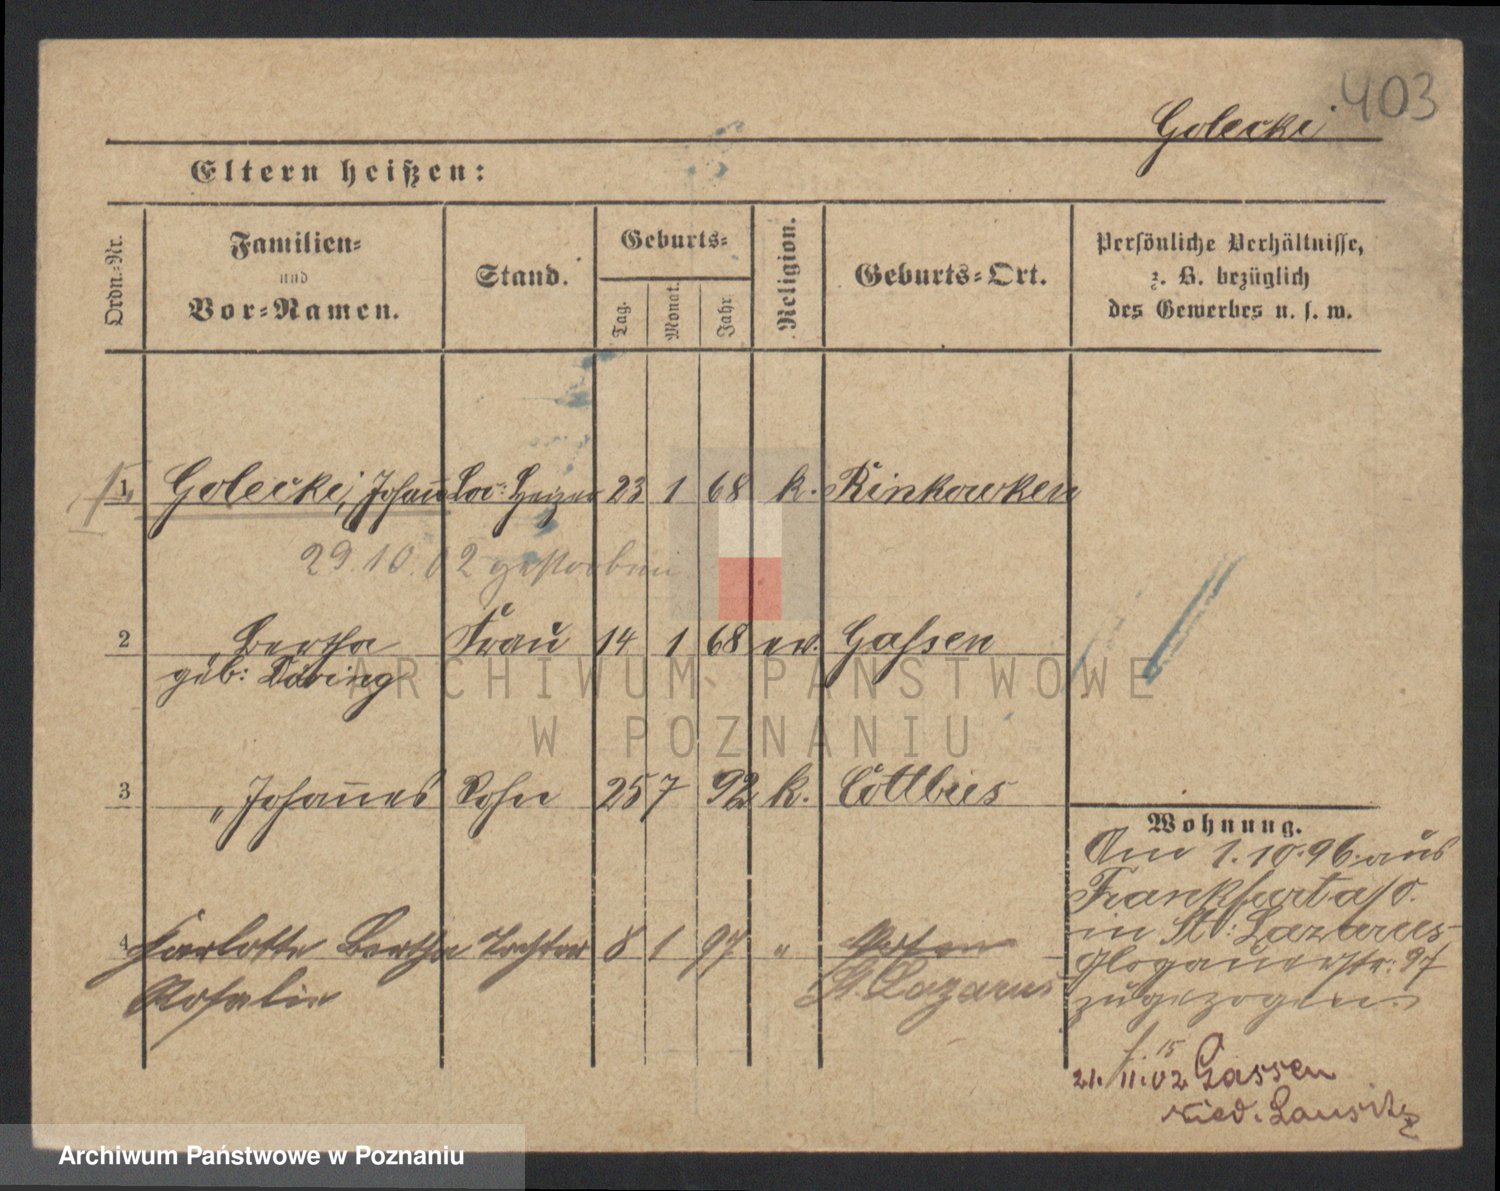 403
Golecki
Eltern heißen:
Ordn.=Nr.
Familien=
und
Vor=Namen.
Stand.
Geburts=
Tag.
Monat.
Jahr
Religion.
Geburts=Ort.
Persönliche Verhältnisse,
z. B. bezüglich
des Gewerbes u. s. w.
1 Golecki, Johann Loc: Heizer 23 1 68 k. Rinkowken
29.10.02 gestorben
2 " Bertha Frau 14 1 68 ev. Gassen
geb: Döring
3 " Johannes Sohn 25 7 92 k. Cottbus
4 Charlotte Bertha Tochter 8 1 97 " Posen
Rosalie St. Lazarus
Wohnung.
Am 1.10.96 aus
Frankfurt a/O.
in St: Lazarus
Glogauerstr: 97
zugezogen.
21. 11.02 Gassen
Nied. Lausitz
ARCHIWUM PAŃSTWOWE
W POZNANIU
Archiwum Państwowe w Poznaniu